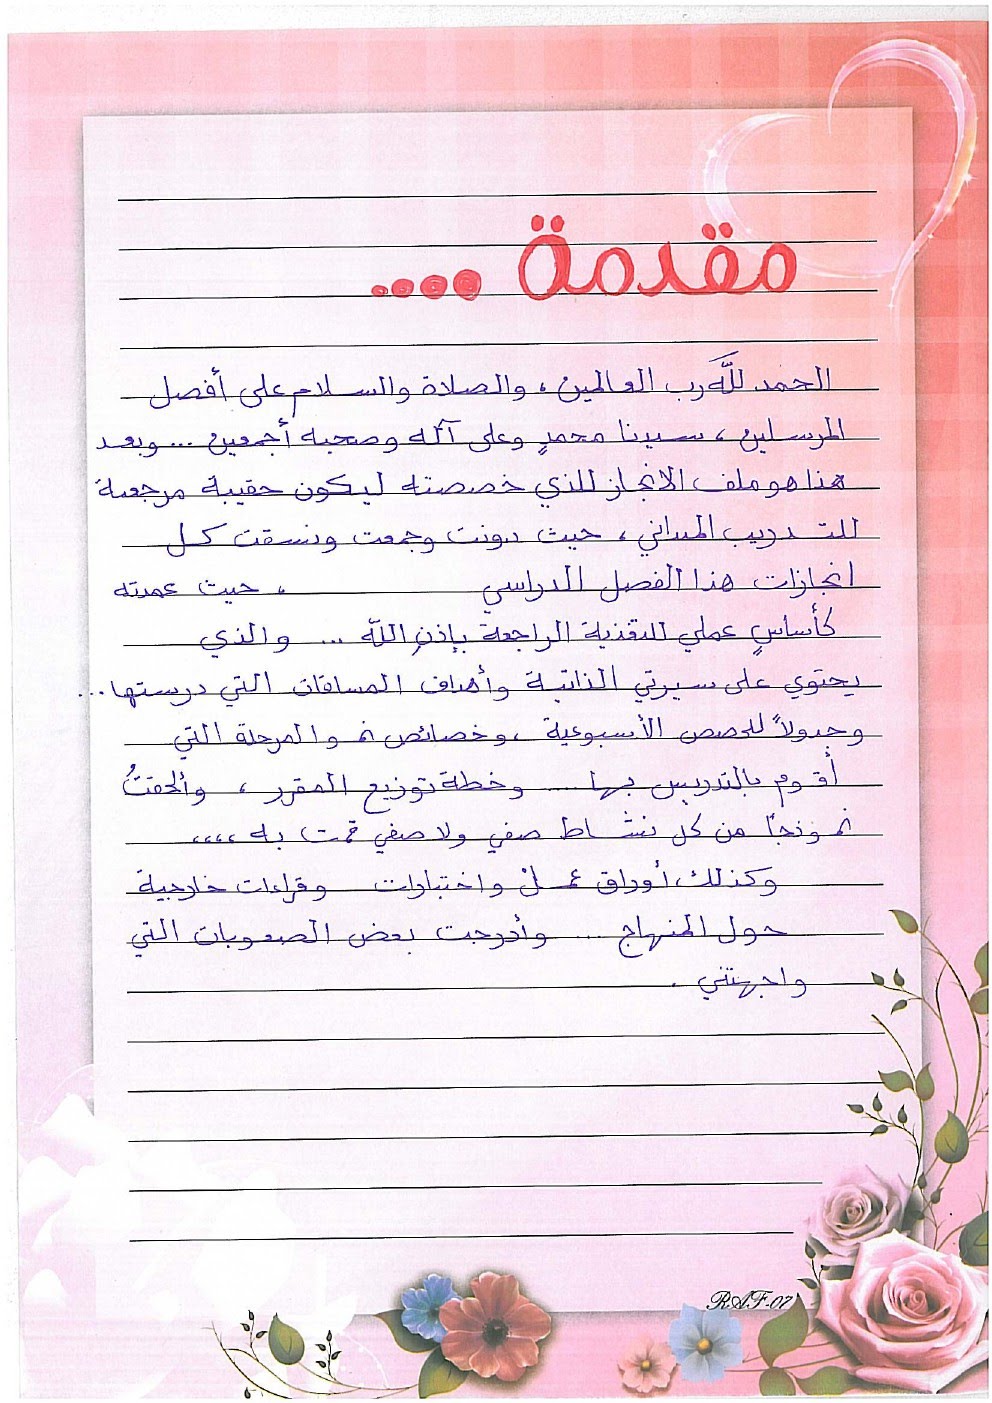 مقدمة ....
الحمد للَّه رب العالمين ، والصلاة والسلام على أفضل
المرسلين ، سيدنا محمدٍ وعلى آله وصحبه أجمعين ... وبعد
هذا هو ملف الانجاز للذي خصصته ليكون حقيبة مرجعية
للتدريب الميداني ، حيث دونت وجمعت ونسقت كل
انجازات هذا الفصل الدراسي ، حيث عمدته
كأساسٍ عملي للتغذية الراجعة بإذن اللَّه ... والذي
يحتوي على سيرتي الذاتية وأهداف المساقات التي درستها ...
وجدولاً للحصص الأسبوعية ، وخصائص نمو المرحلة التي
أقوم بالتدريس بها ... وخطة توزيع المقرر ، وألحقتُ
نموذجاً من كل نشاط صفي ولا صفي قمت به ،،،،
وكذلك أوراق عملٍ واختبارات وقراءات خارجية
حول المنهاج ... وأدرجت بعض الصعوبات التي
واجهتني .
RAF-07